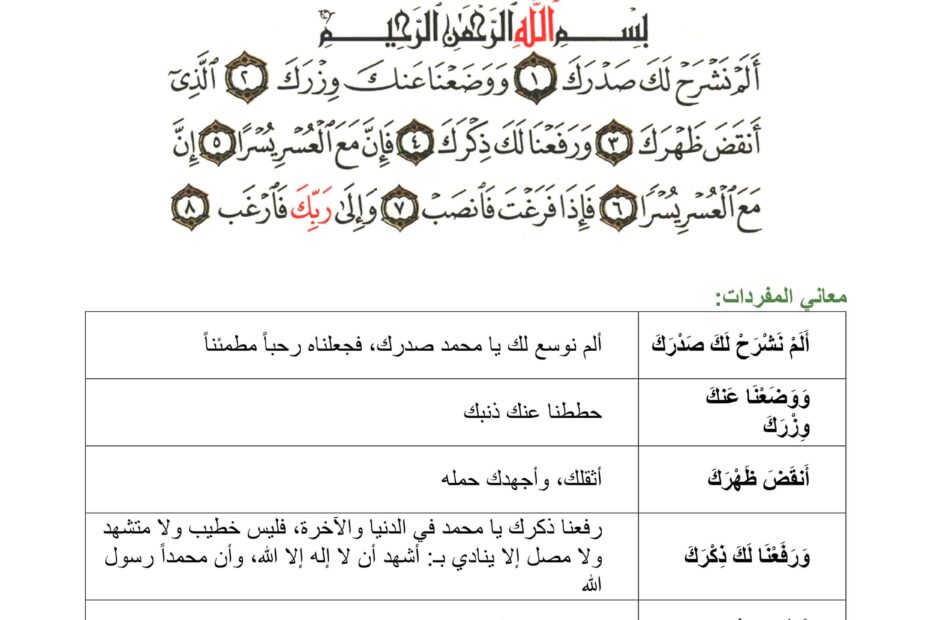 بِسْمِ اللَّهِ الرَّحْمَٰنِ الرَّحِيمِ
أَلَمْ نَشْرَحْ لَكَ صَدْرَكَ ١ وَوَضَعْنَا عَنكَ وِزْرَكَ ٢ ٱلَّذِىٓ
أَنقَضَ ظَهْرَكَ ٣ وَرَفَعْنَا لَكَ ذِكْرَكَ ٤ فَإِنَّ مَعَ ٱلْعُسْرِ يُسْرًا ٥ إِنَّ
مَعَ ٱلْعُسْرِ يُسْرًا ٦ فَإِذَا فَرَغْتَ فَٱنصَبْ ٧ وَإِلَىٰ رَبِّكَ فَٱرْغَب ٨
معاني المفردات:
أَلَمْ نَشْرَحْ لَكَ صَدْرَكَ
ألم نوسع لك يا محمد صدرك، فجعلناه رحباً مطمئناً
وَوَضَعْنَا عَنكَ
وِزْرَكَ
حططنا عنك ذنبك
أَنقَضَ ظَهْرَكَ
أثقلك، وأجهدك حمله
وَرَفَعْنَا لَكَ ذِكْرَكَ
رفعنا ذكرك يا محمد في الدنيا والآخرة، فليس خطيب ولا متشهد
ولا مصل إلا ينادي بـ: أشهد أن لا إله إلا الله، وأن محمداً رسول
الله